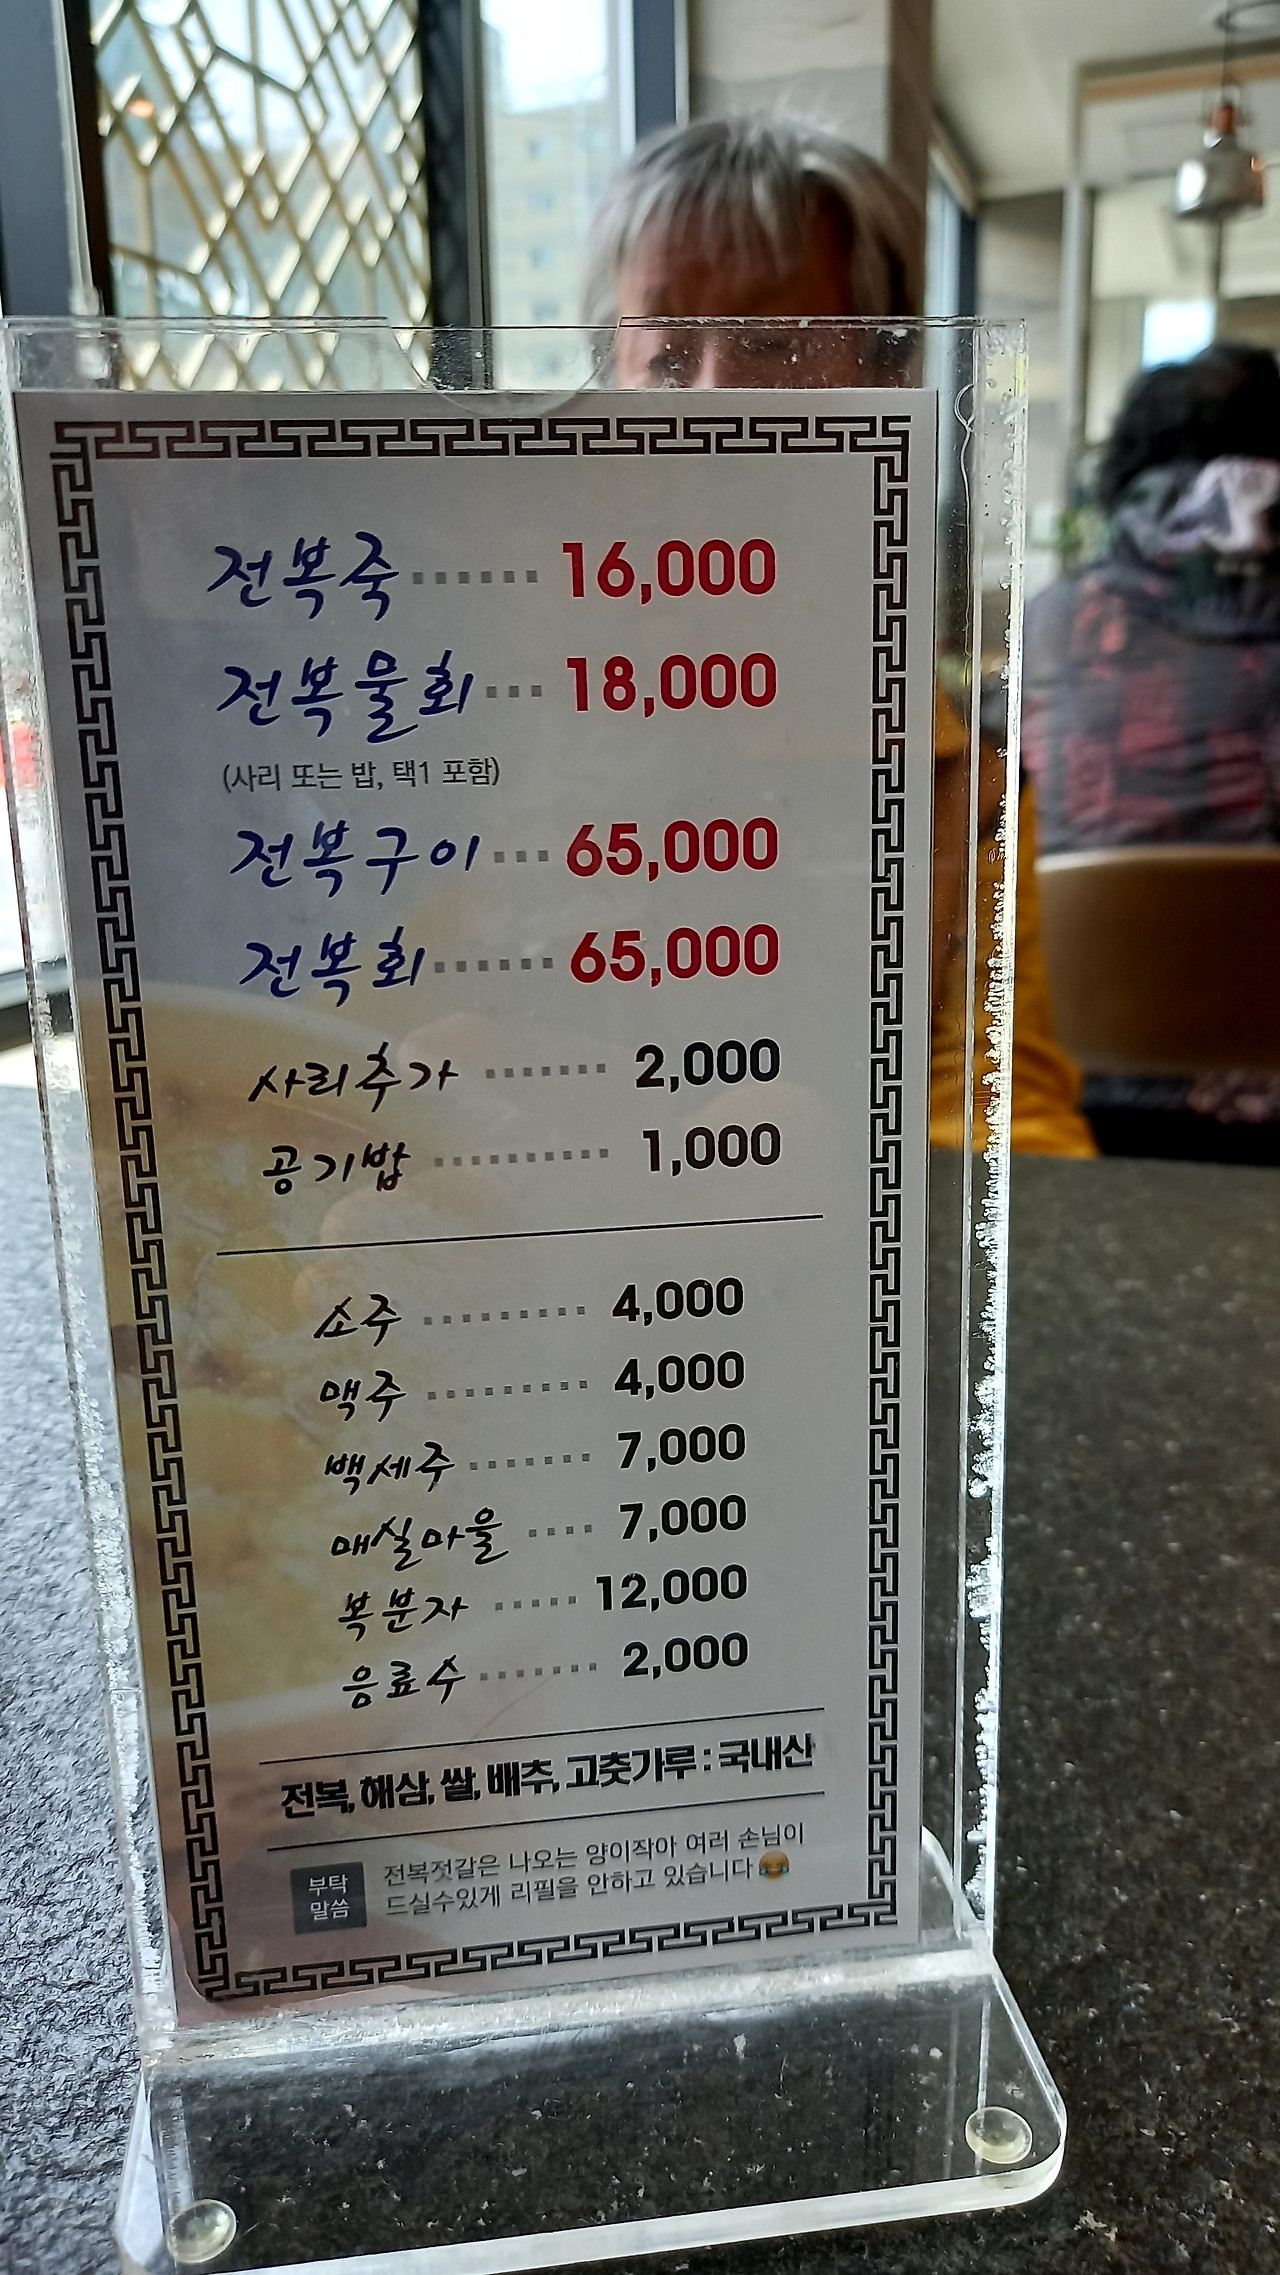 전복죽 ······ 16,000
전복물회 ··· 18,000
(사리 또는 밥, 택1 포함)
전복구이 ··· 65,000
전복회 ······ 65,000
사리추가 ······· 2,000
공기밥 ·········· 1,000
소주 ········· 4,000
맥주 ········· 4,000
백세주 ······· 7,000
매실마을 ···· 7,000
복분자 ····· 12,000
음료수 ······· 2,000
전복, 해삼, 쌀, 배추, 고춧가루 : 국내산
부탁
말씀
전복젓갈은 나오는 양이작아 여러 손님이
드실수있게 리필을 안하고 있습니다😂